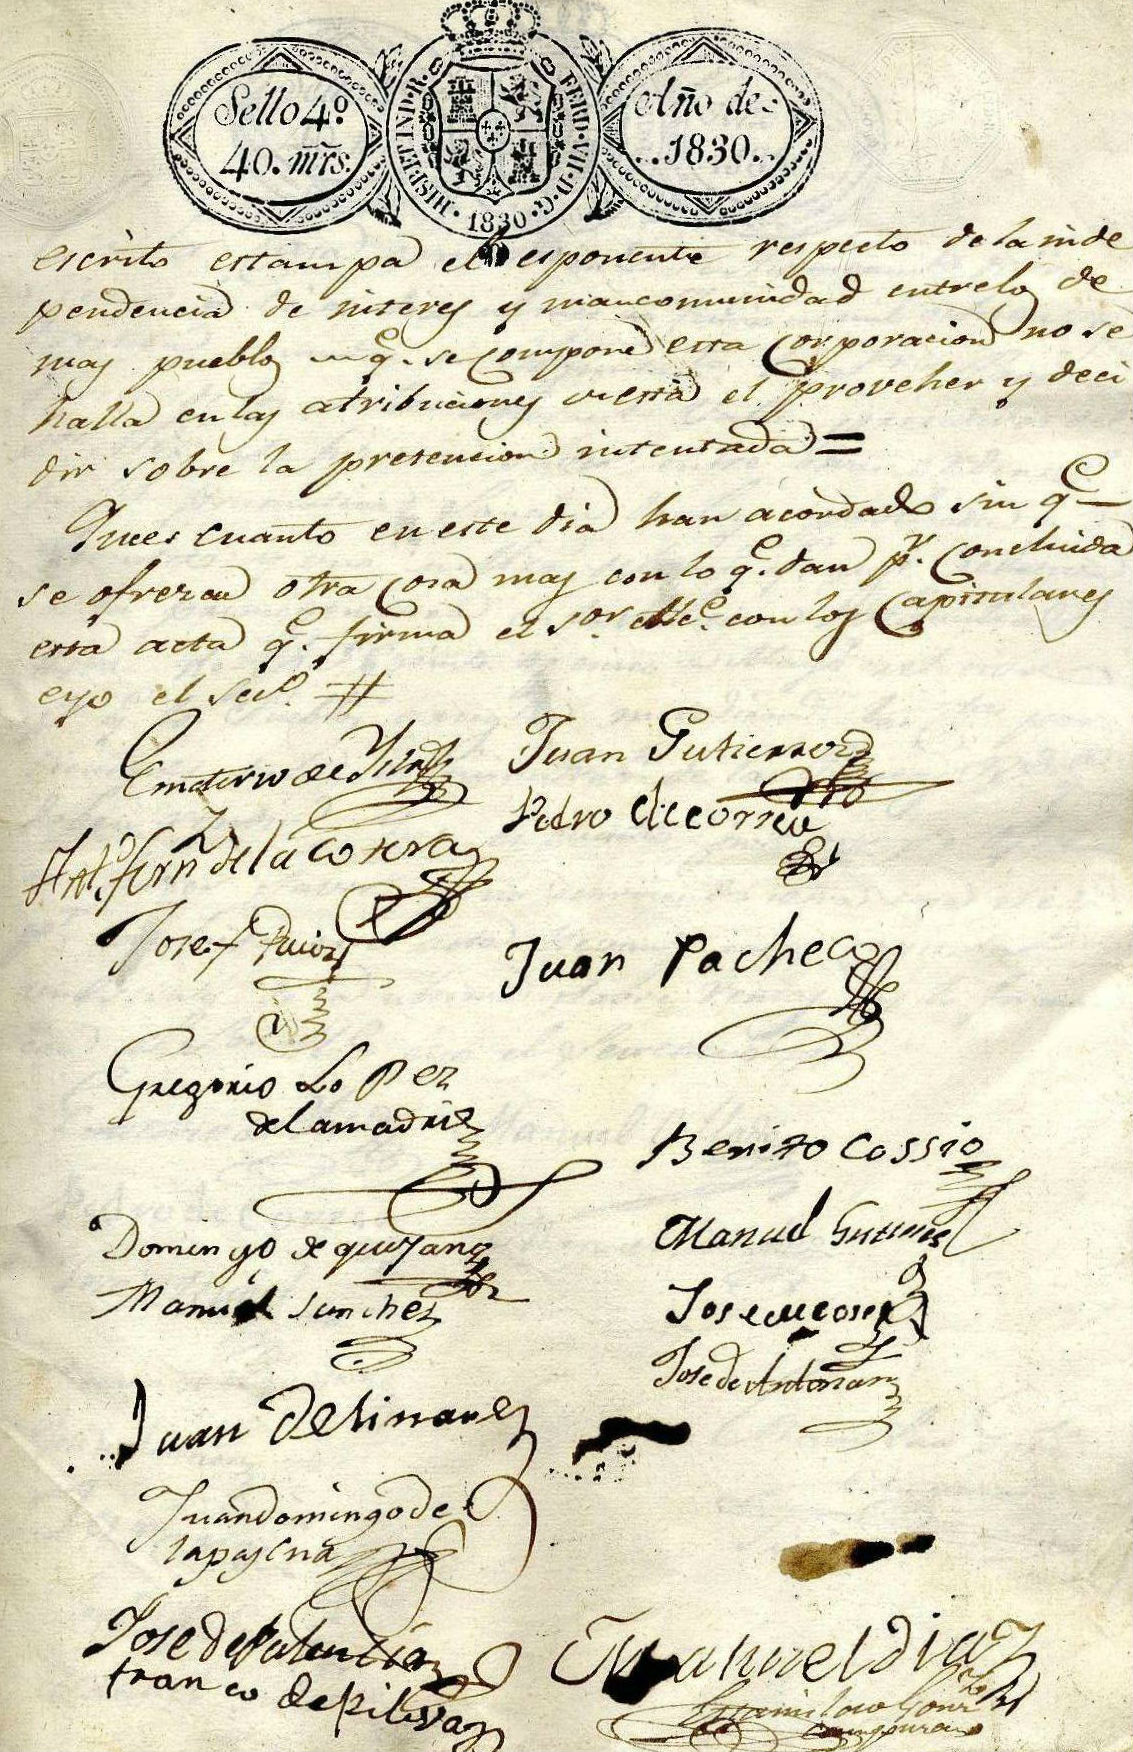 Sello 4º.
40. mrs.
HISP. ET IND. R. FERD. VII. D. G.
1830
Año de
1830.
escrito estampa el esponente respecto de la inde
pendencia de interes y mancomunidad entre los de
mas pueblos en q.e se compone esta Corporacion no se
halla en las atribuciones de esta el proveher y deci
dir sobre la pretencion intentada =
Que es cuanto en este dia han acordado sin q.e
se ofrezca otra cosa mas con lo q.e dan p.r concluida
esta acta q.e firma el Sor. Alc.e con los Capitulares
e yo el Sec.o #
Emeterio de
Juan Gutierrez
Pedro de Correa
Ant.o Fern de la Cotera
Josef Ruiz
Juan Pacheco
Gregorio Lopez
de la madrid
Benito Cossio
Domingo de quijano
Manuel Gutierrez
Manuel Sanchez
Jose de
Jose de Antonan
Juan De Linares
Juan domingo de
la pasena
Jose de Palencia
franco de
Manuel diaz